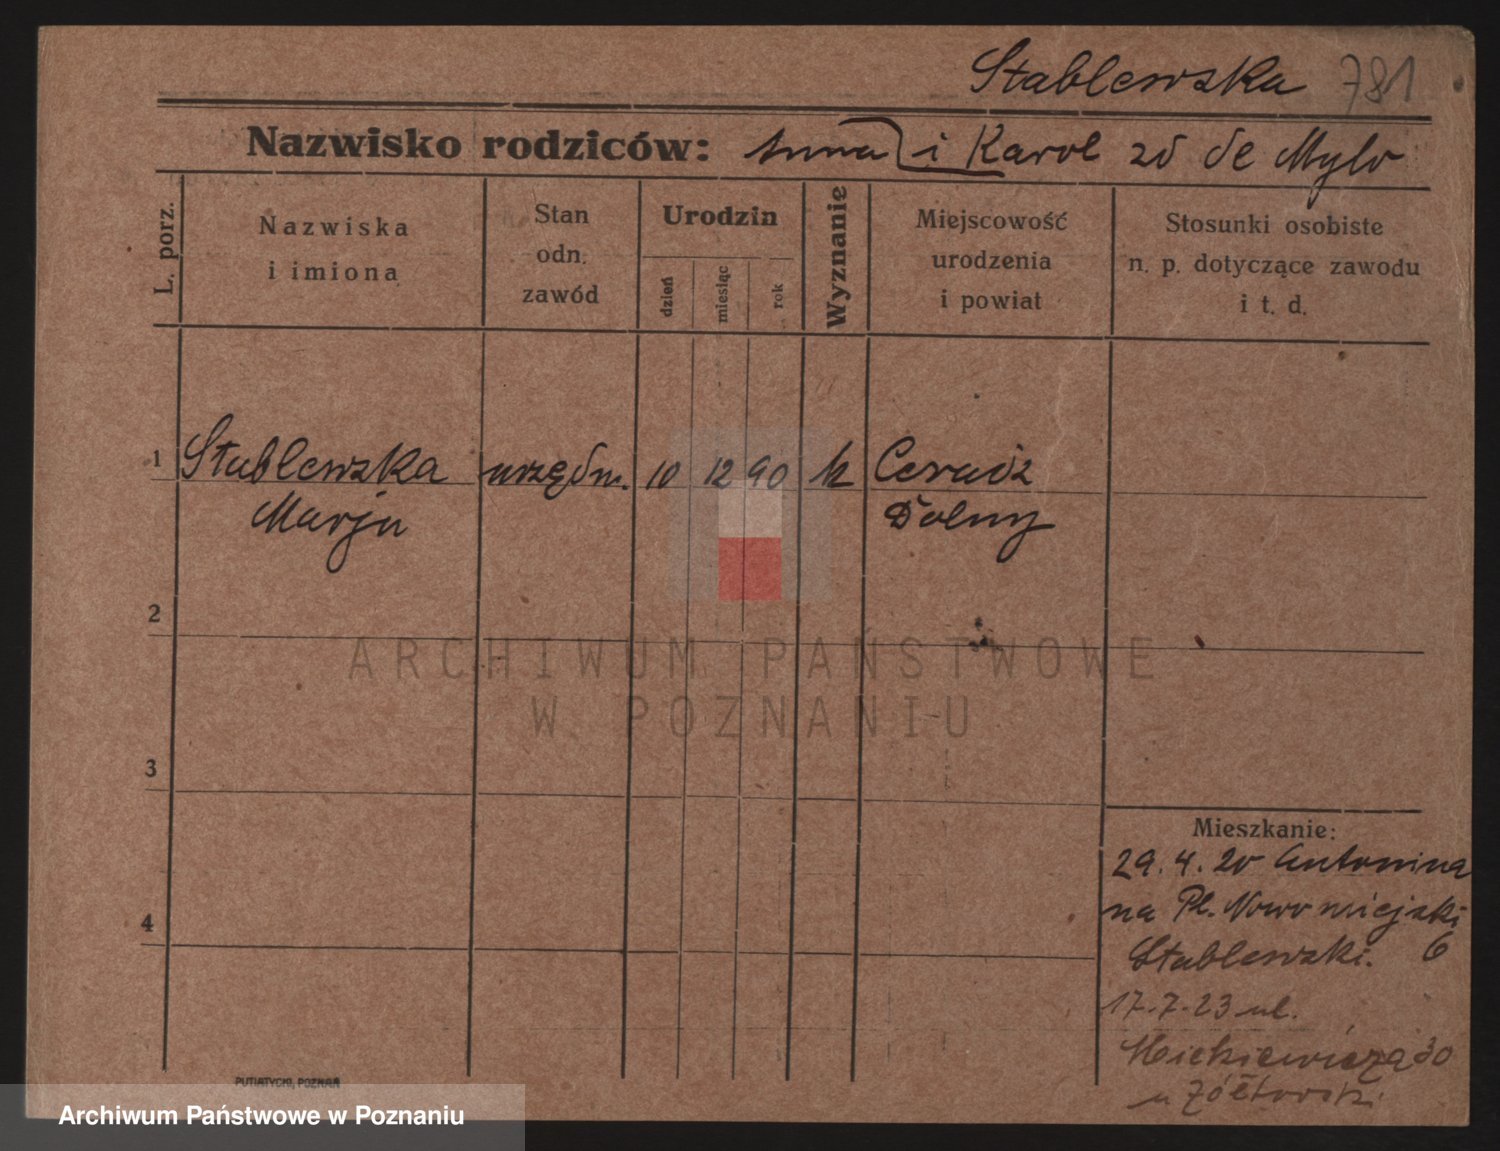 Stablewska 781
Nazwisko rodziców: Anna i Karol zd de Mylo
L. porz.
Nazwiska
i imiona
Stan
odn.
zawód
Urodzin
dzień
miesiąc
rok
Wyznanie
Miejscowość
urodzenia
i powiat
Stosunki osobiste
n. p. dotyczące zawodu
i t. d.
1 Stablewska urzędn. 10 12 90 k Ceradz
Marja Dolny
2
ARCHIWUM PAŃSTWOWE
W POZNANIU
3
Mieszkanie:
29.4.20 Antonina
na Pl. Nowomiejski
4
Stablewski. 6
17.7.23 ul.
Mickiewicza 30
u Żółtowski
PUTIATYCKI, POZNAŃ
Archiwum Państwowe w Poznaniu